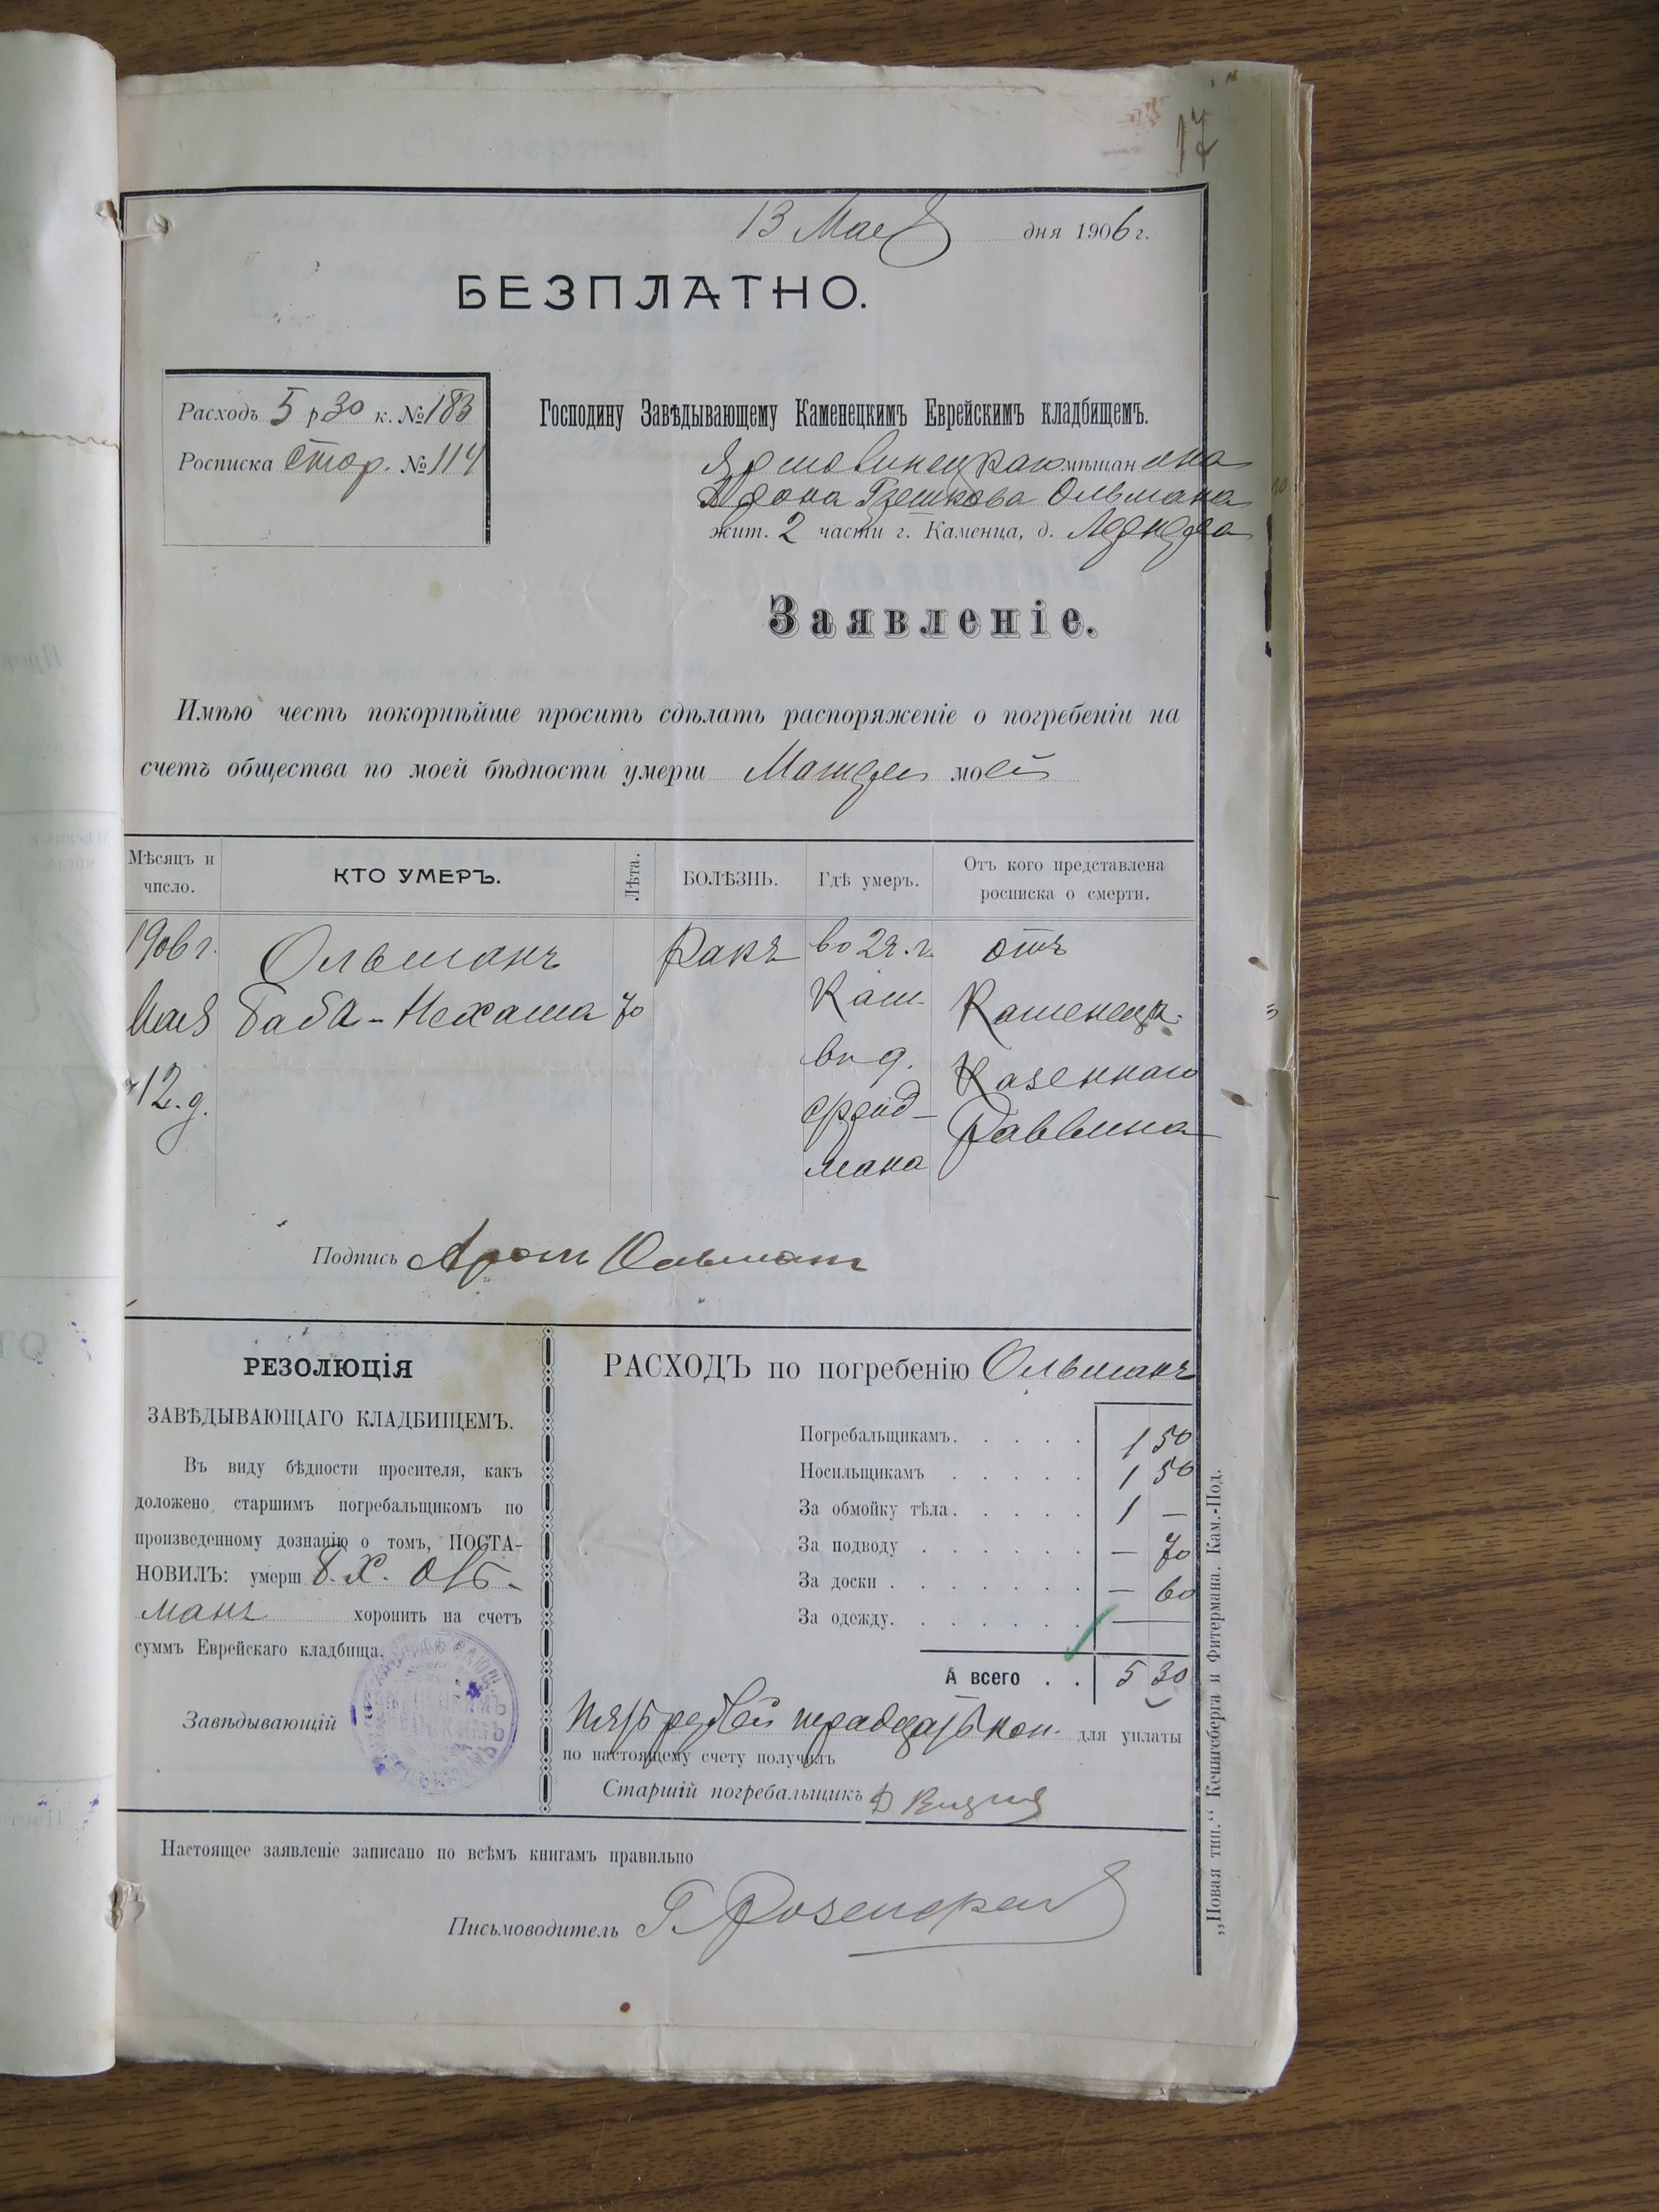 17
13 Мая дня 1906 г.
БЕЗПЛАТНО.
Расходъ 5 р 30 к. № 183
Росписка стор. № 114
Господину Завѣдывающему Каменецкимъ Еврейскимъ кладбищемъ.
мѣщанина
Арона Ольшмана
жит. 2 части г. Каменца, д.
Заявленіе.
Имѣю честь покорнѣйше просить сдѣлать распоряженіе о погребеніи на
счетъ общества по моей бѣдности умерш Матери моей
Мѣсяцъ и число.
КТО УМЕРЪ.
Лѣта.
БОЛѢЗНЬ.
Гдѣ умеръ.
Отъ кого представлена росписка о смерти.
1906 г. Ольшманъ Ракъ во 2 ч. г. отъ
Мая Баба-Нехама 70 Кам. Каменецк.
12 д. въ д. Казеннаго
Фридмана Раввина
Подпись Аронъ Ольшманъ
РЕЗОЛЮЦІЯ
ЗАВѢДЫВАЮЩАГО КЛАДБИЩЕМЪ.
Въ виду бѣдности просителя, какъ
доложено старшимъ погребальщикомъ по
произведенному дознанію о томъ, ПОСТА-
НОВИЛЪ: умерш Б. Х. Оль-
манъ хоронить на счетъ
суммъ Еврейскаго кладбища.
Завѣдывающій
РАСХОДЪ по погребенію Ольшманъ
Погребальщикамъ. 1 50
Носильщикамъ 1 50
За обмойку тѣла. 1 —
За подводу — 70
За доски — 60
За одежду. —
А всего 5 30
Пять рублей тридцать коп. для уплаты
по настоящему счету получилъ
Старшій погребальщикъ
Настоящее заявленіе записано по всѣмъ книгамъ правильно
Письмоводитель Г.
„Новая тип.“ Кенигсберга и Фитермана. Кам.-Под.